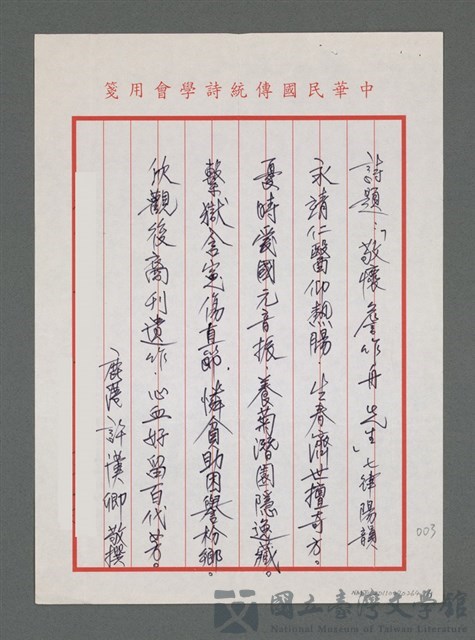 中華民國傳統詩學會用箋
詩題：「敬懷詹作舟先生」七律陽韻
永靖仁醫仰熱腸．生春濟世擅奇方。
憂時愛國元音振．養菊潛園隱逸藏。
繫獄含冤傷直節．憐貧助困譽枌鄉。
欣觀後裔刊遺作．心血好留百代芳。
鹿港 許漢卿 敬撰
003
國立臺灣文學館
National Museum of Taiwan Literature